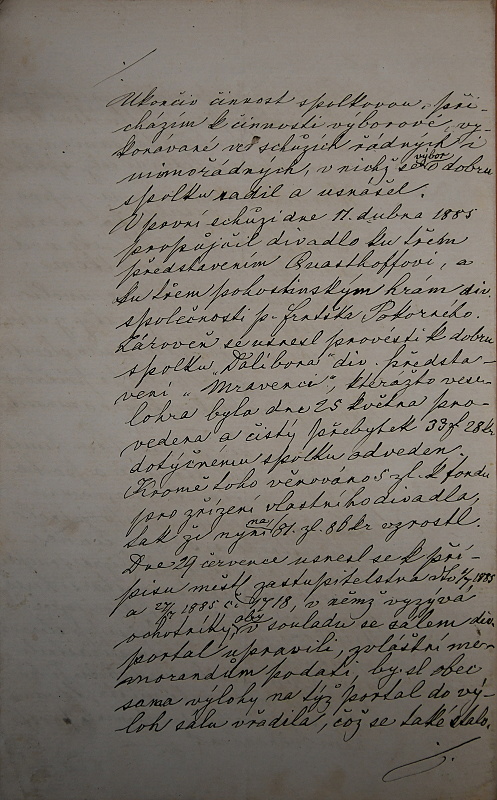 Ukončiv činnost spolkovou, při-
cházím k činnosti výborové, vy-
konavané ve schůzích řádných i
mimořádných, v nichž se výbor o dobru
spolku radil a usnášel.
V první schůzi dne 17. dubna 1885
propůjčil divadlo ku třem
představením Quasthoffovi, a
ku třem pohostinským hrám div.
společnosti p. Frntška Pokorného.
Zároveň se usnesl provésti k dobru
spolku „Dalibora" div. předsta-
vení „Mravenci", kterážto vese-
lohra byla dne 25 května pro-
vedena a čistý přebytek 33 zl 28 kr
dotyčnému spolku odveden.
Kromě toho věnováno 5 zl. k fondu
pro zřízení vlastního divadla,
tak že nyní na 61. zl. 86 kr vzrostl.
Dne 29 července usnesl se k pří-
pisu městs. zastupitelstva dto 1885
a 1885 či 1718, v němž vyzývá
ochotníky, aby v souladu se sálem div.
portal upravili, zvláštní me-
morandum podati, by si obec
sama výlohy na týž portál do vý-
loh sálu vřadila, což se také stalo.